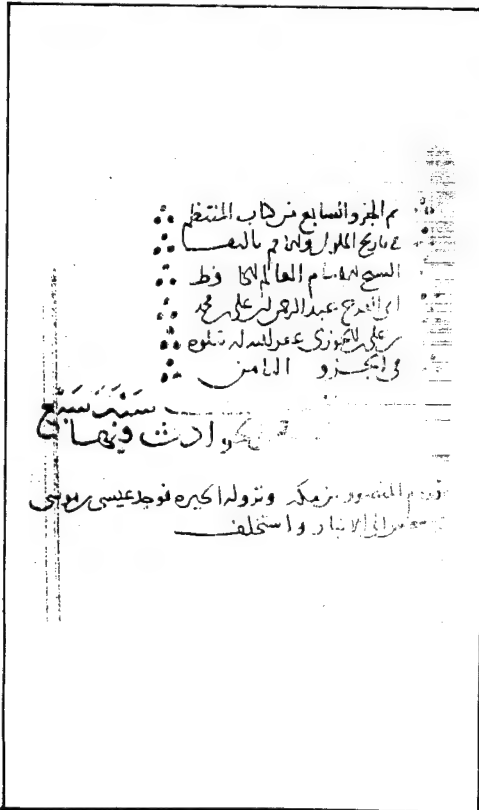 تم الجزو السابع من كتاب المنتظم
في تاريخ الملوك والامم تاليف
الشيخ الامام العالم الحافظ
ابي الفرج عبد الرحمن بن علي بن محمد
بن علي الجوزي غفر الله له تتلوه
في الجزو الثامن
سنة سبع
الحوادث فيها
قدوم المنصور من مكة ونزوله الحيرة فوجد عيسى بن موسى
الى الانبار واستخلف